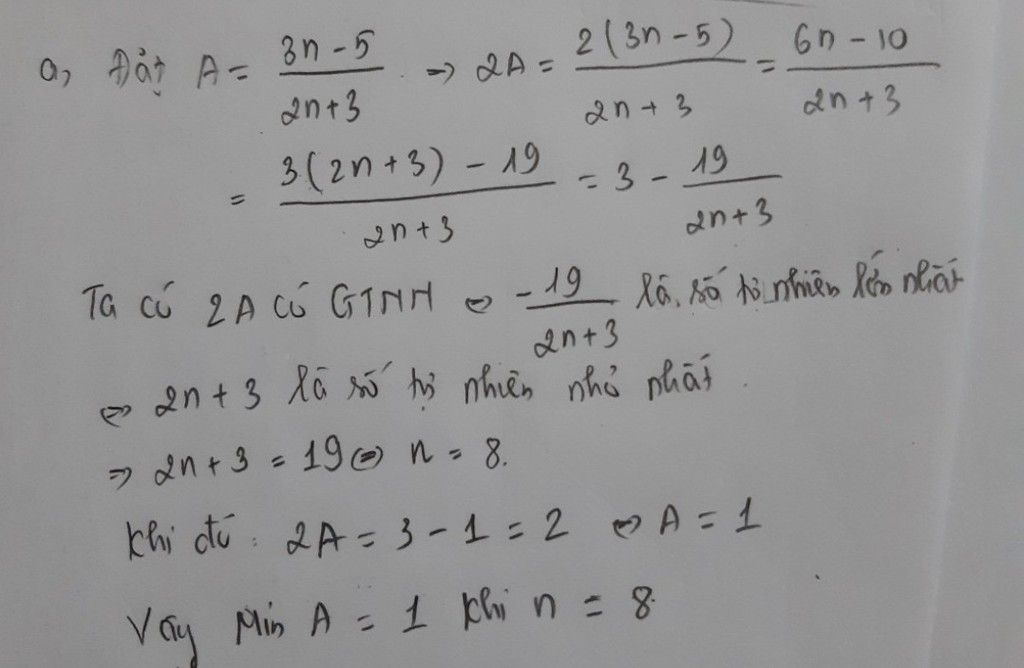 a, Đặt A = \frac{3n-5}{2n+3} => 2A = \frac{2(3n-5)}{2n+3} = \frac{6n-10}{2n+3}
= \frac{3(2n+3)-19}{2n+3} = 3 - \frac{19}{2n+3}
Ta có 2A có GTNN <=> -\frac{19}{2n+3} là số tự nhiên lớn nhất
<=> 2n+3 là số tự nhiên nhỏ nhất.
=> 2n+3 = 19 <=> n = 8.
Khi đó: 2A = 3 - 1 = 2 <=> A = 1
Vậy Min A = 1 khi n = 8